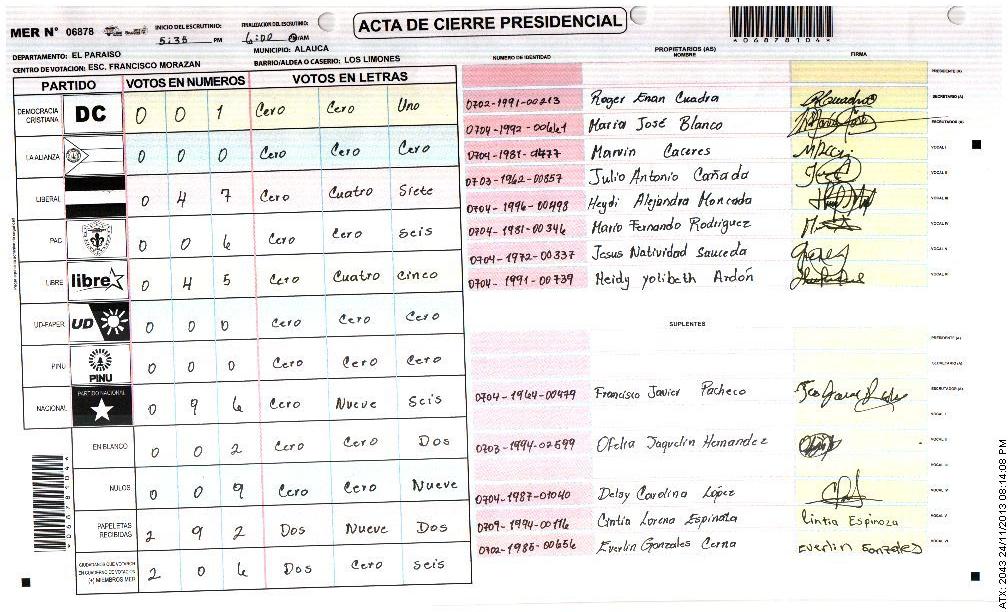 MER N° 06878
INICIO DEL ESCRUTINIO: 5:35 PM
FINALIZACION DEL ESCRUTINIO: 6:00
ACTA DE CIERRE PRESIDENCIAL
*06878104*
DEPARTAMENTO: EL PARAISO
MUNICIPIO: ALAUCA
CENTRO DE VOTACION: ESC. FRANCISCO MORAZAN
BARRIO/ALDEA O CASERIO: LOS LIMONES
PARTIDO VOTOS EN NUMEROS VOTOS EN LETRAS
DEMOCRACIA CRISTIANA DC 0 0 1 Cero Cero Uno
LA ALIANZA 0 0 0 Cero Cero Cero
LIBERAL 0 4 7 Cero Cuatro Siete
PAC 0 0 6 Cero Cero Seis
LIBRE libre 0 4 5 Cero Cuatro Cinco
UD-FAPER UD 0 0 0 Cero Cero Cero
PINU PINU 0 0 0 Cero Cero Cero
NACIONAL PARTIDO NACIONAL 0 9 6 Cero Nueve Seis
EN BLANCO 0 0 2 Cero Cero Dos
NULOS 0 0 9 Cero Cero Nueve
PAPELETAS RECIBIDAS 2 9 2 Dos Nueve Dos
CIUDADANOS QUE VOTARON EN CUADERNO DE VOTACION (+) MIEMBROS MER 2 0 6 Dos Cero Seis
*06878104*
PROPIETARIOS (AS)
NUMERO DE IDENTIDAD NOMBRE FIRMA
PRESIDENTE (A)
0702-1991-00213 Roger Enan Cuadra SECRETARIO (A)
0704-1992-00661 Maria José Blanco ESCRUTADOR (A)
Marvin Caceres VOCAL I
0703-1962-00857 Julio Antonio Cañada VOCAL II
0704-1996-00498 Heydi Alejandra Moncada VOCAL III
0704-1981-00346 Mario Fernando Rodriguez VOCAL IV
0704-1972-00337 Jesus Natividad Sauceda VOCAL V
0704-1991-00739 Heidy yolibeth Ardón VOCAL VI
SUPLENTES
PRESIDENTE (A)
SECRETARIO (A)
0704-1964-00479 Francisco Javier Pacheco ESCRUTADOR (A)
VOCAL I
0703-1994-02599 Ofelia Jaquelin Hernandez VOCAL II
VOCAL III
0704-1987-01040 Delsy Carolina López VOCAL IV
0709-1994-00116 Cintia Lorena Espinoza Cintia Espinoza VOCAL V
0702-1985-00656 Everlin Gonzales Cerna Everlin Gonzales VOCAL VI
ATX: 2043 24/11/2013 08:14:08 PM